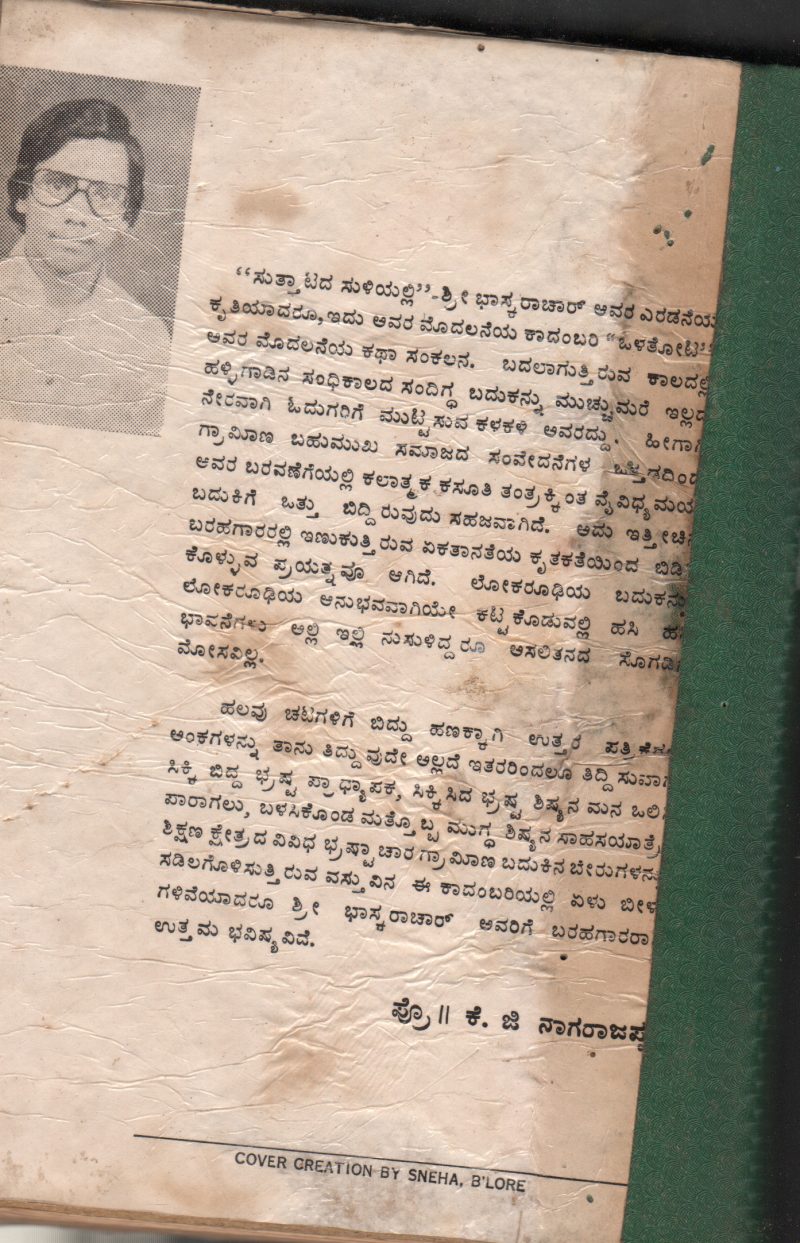 “ಸುತ್ತಾಟದ ಸುಳಿಯಲ್ಲಿ”-ಶ್ರೀ ಭಾಸ್ಕರಾಚಾರ್ ಅವರ ಎರಡನೆಯ
ಕೃತಿಯಾದರೂ, ಇದು ಅವರ ಮೊದಲನೆಯ ಕಾದಂಬರಿ “ಒಳತೋಟಿ”
ಅವರ ಮೊದಲನೆಯ ಕಥಾ ಸಂಕಲನ. ಬದಲಾಗುತ್ತಿರುವ ಕಾಲದಲ್ಲಿ
ಹಳ್ಳಿಗಾಡಿನ ಸಂಧಿಕಾಲದ ಸಂದಿಗ್ಧ ಬದುಕನ್ನು ಮುಚ್ಚುಮರೆ ಇಲ್ಲದ
ನೇರವಾಗಿ ಓದುಗರಿಗೆ ಮುಟ್ಟಿಸುವ ಕಳಕಳಿ ಅವರದ್ದು. ಹೀಗಾಗಿ
ಗ್ರಾಮೀಣ ಬಹುಮುಖ ಸಮಾಜದ ಸಂವೇದನೆಗಳ ಒತ್ತಡದಿಂದ
ಅವರ ಬರವಣಿಗೆಯಲ್ಲಿ ಕಲಾತ್ಮಕ ಕಸೂತಿ ತಂತ್ರಕ್ಕಿಂತ ವೈವಿಧ್ಯಮಯ
ಬದುಕಿಗೆ ಒತ್ತು ಬಿದ್ದಿರುವುದು ಸಹಜವಾಗಿದೆ. ಅದು ಇತ್ತೀಚಿನ
ಬರಹಗಾರರಲ್ಲಿ ಇಣುಕುತ್ತಿರುವ ಏಕತಾನತೆಯ ಕೃತಕತೆಯಿಂದ ಬಿಡಿ
ಕೊಳ್ಳುವ ಪ್ರಯತ್ನವೂ ಆಗಿದೆ. ಲೋಕರೂಢಿಯ ಬದುಕನ್ನು
ಲೋಕರೂಢಿಯ ಅನುಭವವಾಗಿಯೇ ಕಟ್ಟಿಕೊಡುವಲ್ಲಿ ಹಸಿ ಹಸಿ
ಭಾವನೆಗಳು ಅಲ್ಲಿ ಇಲ್ಲಿ ನುಸುಳಿದ್ದರೂ ಅಸಲಿತನದ ಸೊಗಡಿಗೆ
ಮೋಸವಿಲ್ಲ.
ಹಲವು ಚಟಗಳಿಗೆ ಬಿದ್ದು ಹಣಕ್ಕಾಗಿ ಉತ್ತರ
ಅಂಕಗಳನ್ನು ತಾನು ತಿದ್ದುವುದೇ ಅಲ್ಲದೆ ಇತರರಿಂದಲೂ ತಿದ್ದಿಸುವಾಗ
ಸಿಕ್ಕಿ ಬಿದ್ದ ಭ್ರಷ್ಟ ಪ್ರಾಧ್ಯಾಪಕ, ಸಿಕ್ಕಿಸಿದ ಭ್ರಷ್ಟ ಶಿಷ್ಯನ ಮನ ಒಲಿಸಿ
ಪಾರಾಗಲು, ಬಳಸಿಕೊಂಡ ಮತ್ತೊಬ್ಬ ಮುಗ್ಧ ಶಿಷ್ಯನ ಸಾಹಸಯಾತ್ರೆ
ಶಿಕ್ಷಣ ಕ್ಷೇತ್ರದ ವಿವಿಧ ಭ್ರಷ್ಟಾಚಾರ ಗ್ರಾಮೀಣ ಬದುಕಿನ ಬೇರುಗಳನ್ನು
ಸಡಿಲಗೊಳಿಸುತ್ತಿರುವ ವಸ್ತುವಿನ ಈ ಕಾದಂಬರಿಯಲ್ಲಿ ಏಳು ಬೀಳು
ಗಳಿವೆಯಾದರೂ ಶ್ರೀ ಭಾಸ್ಕರಾಚಾರ್ ಅವರಿಗೆ ಬರಹಗಾರರಾ
ಉತ್ತಮ ಭವಿಷ್ಯವಿದೆ.
ಪ್ರೊ॥ ಕೆ. ಜಿ ನಾಗರಾಜಪ್ಪ
COVER CREATION BY SNEHA, B'LORE